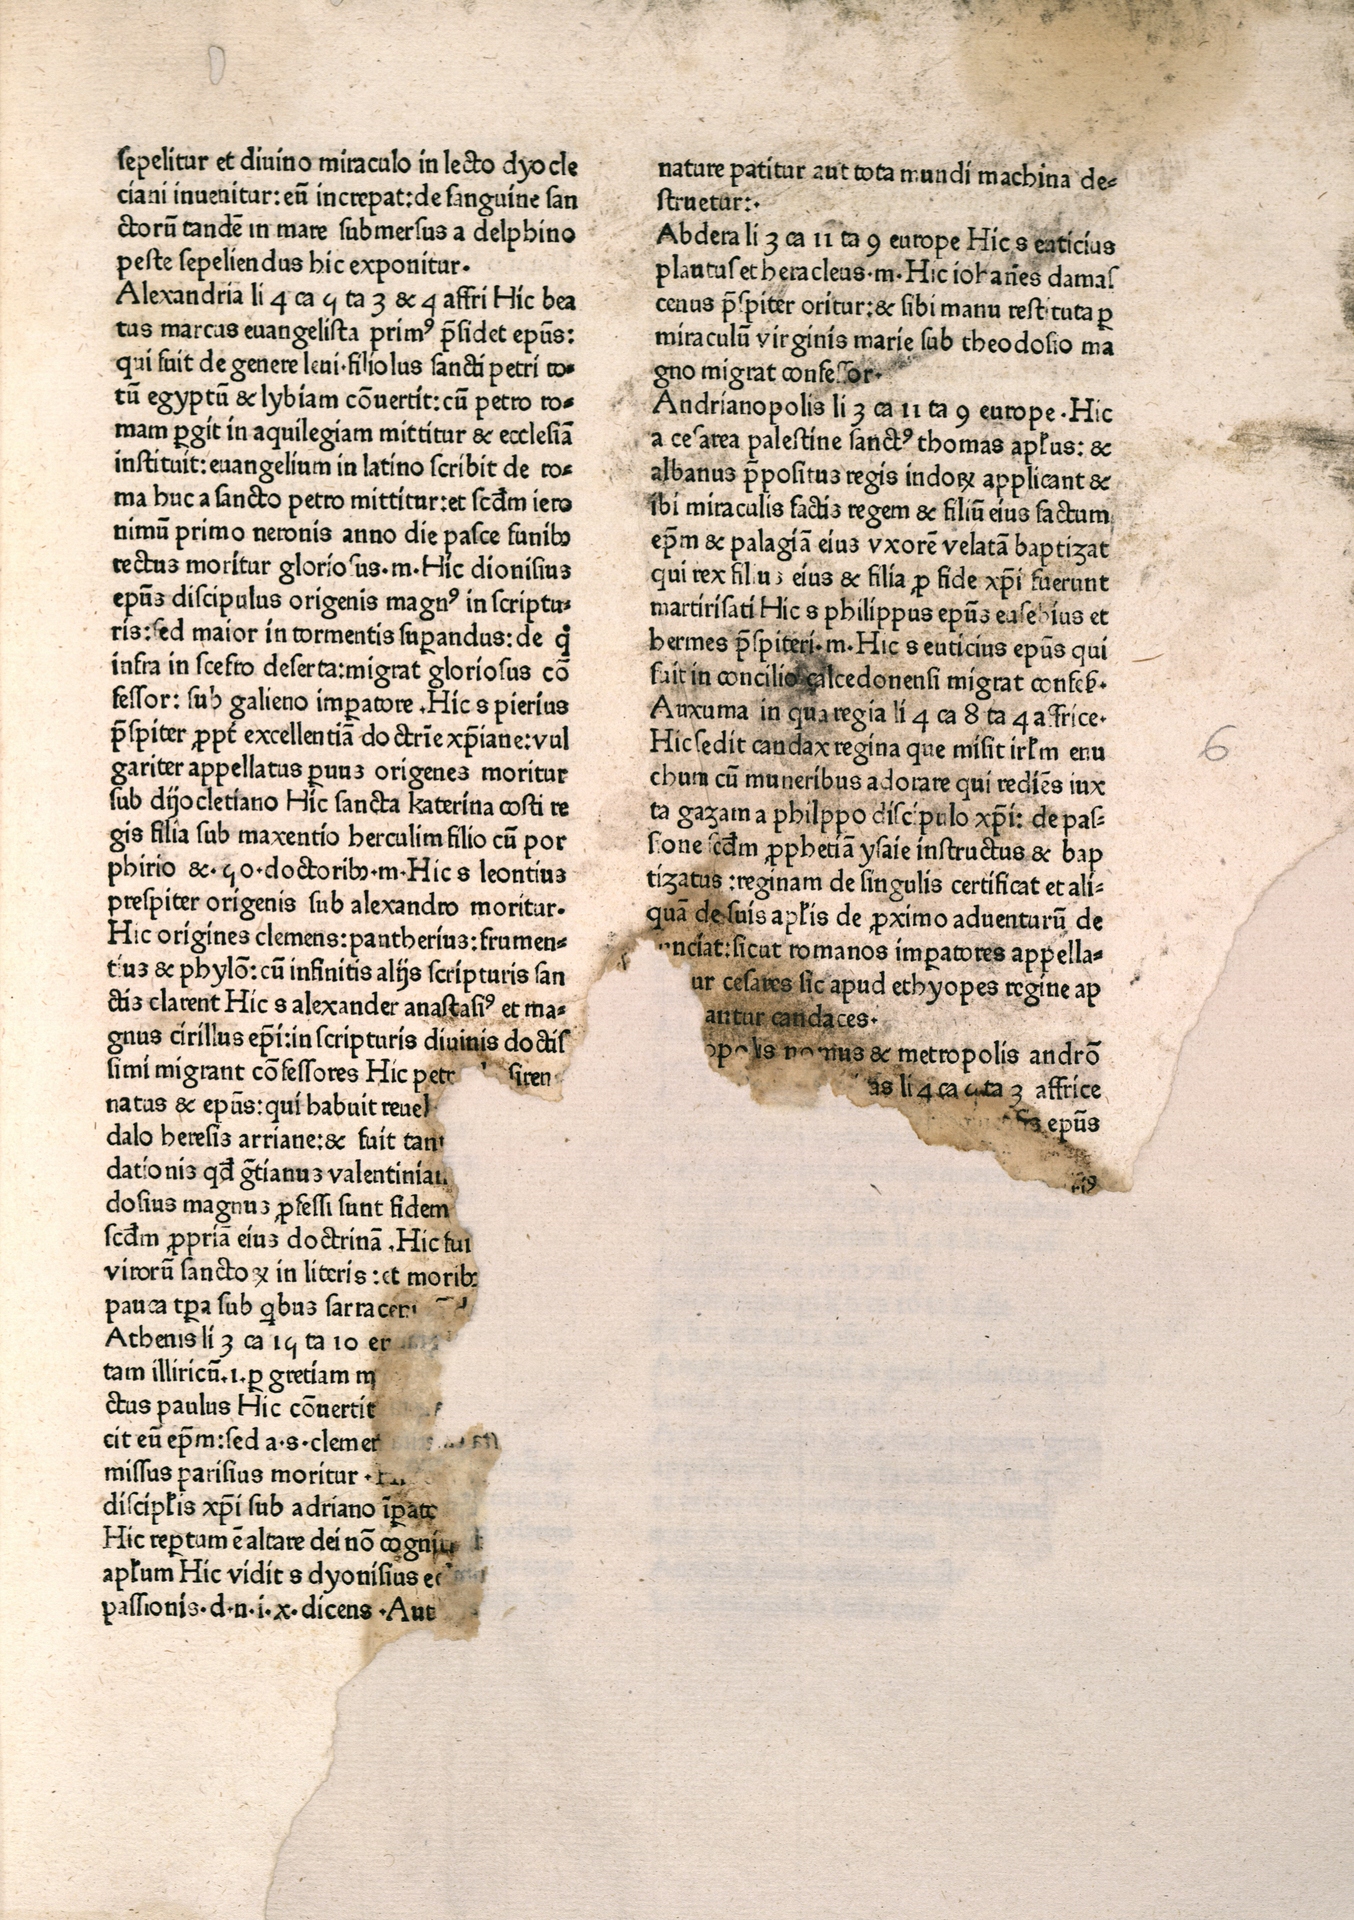 sepelitur et diuino miraculo in lecto dyocle
ciani inuenitur: eū increpat: de sanguine san
ctorū tandē in mare submersus a delphino
peste sepeliendus hic exponitur.
Alexandria li 4 ca 5 ta 3 & 4 affri Hic bea
tus marcus euangelista primꝰ p̄sidet ep̄us:
qui fuit de genere leui.filiolus sancti petri to=
tū egyptū & lybiam cōuertit: cū petro ro=
mam ꝑgit in aquilegiam mittitur & ecclesiā
instituit: euangelium in latino scribit de ro=
ma huc a sancto petro mittitur: et scd̄m iero
nimū primo neronis anno die pasce funibꝰ
tectus moritur gloriosus.m.Hic dionisius
ep̄us discipulus origenis magnꝰ in scriptu=
ris: sed maior in tormentis supandus: de q̄
infra in scefto deserta: migrat gloriosus cō
fessor: sub galieno imꝑatore .Hic s pierius
p̄spiter ꝓpt̄ excellentiā doctrīe xp̄iane: vul
gariter appellatus ꝑuus origenes moritur
sub dijocletiano Hic sancta katerina costi re
gis filia sub maxentio herculim filio cū por
phirio &.50.doctoribꝰ.m.Hic s leontius
prespiter origenis sub alexandro moritur.
Hic origines clemens: pantherius: frumen=
tius & phylō: cū infinitis alijs scripturis san
ctis clarent Hic s alexander anastasiꝰ et ma=
gnus cirillus ep̄i: in scripturis diuinis doctis
simi migrant cōfessores Hic petr siren
natus & ep̄us: qui habuit reuel
dalo heresis arriane: & fuit tan
dationis qd̄ g̃tianus valentinian
dosius magnus ꝓfessi sunt fidem
scd̄m ꝓpriā eius doctrinā .Hic fui
virorū sanctoꝝ in literis: et moribꝰ
pauca tꝑa sub qbus sarracen
Athenis li 3 ca 15 ta 10 e
tam illiricū.1.ꝑ gretiam m
ctus paulus Hic cōuertit
cit eū ep̄m: sed a.s.clemen
missus parisius moritur
discipl̄is xp̄i sub adriano īꝑato
Hic reꝑtum ē altare dei nō cogni
apl̄um Hic vidit s dyonisius ec
passionis.d.n.i.x.dicens .Aut
nature patitur aut tota mundi machina de=
struetur:.
Abdera li 3 ca 11 ta 9 europe Hic s euticius
plautus et heracleus.m.Hic iohan̄es damas
cenus p̄spiter oritur: & sibi manu restituta ꝑ
miraculū virginis marie sub theodosio ma
gno migrat confessor.
Andrianopolis li 3 ca 11 ta 9 europe .Hic
a cesarea palestine sanctꝰ thomas apl̄us: &
albanus p̄positus regis indoꝝ applicant &
ibi miraculis factis regem & filiū eius factum
ep̄m & palagiā eius vxorē velatā baptizat
qui rex filius eius & filia ꝓ fide xp̄i fuerunt
martirisati Hic s philippus ep̄us eusebius et
hermes p̄spiteri.m.Hic s euticius ep̄us qui
fuit in concilio calcedonensi migrat confess.
Auxuma in qua regia li 4 ca 8 ta 4 affrice.
Hic sedit candax regina que misit irl̄m enu
chum cū muneribus adorare qui rediēs iux
ta gazam a philppo discipulo xp̄i: de pas=
sione scd̄m ꝓphetiā ysaie instructus & bap
tizatus: reginam de singulis certificat et ali=
quā de suis apl̄is de ꝓximo aduenturū de
unciat: sicut romanos imꝑatores appella=
ur cesares sic apud ethyopes regine ap
antur candaces.
opolis & metropolis andrō
as li 4 ca 5 ta 3 affrice
ep̄us
6